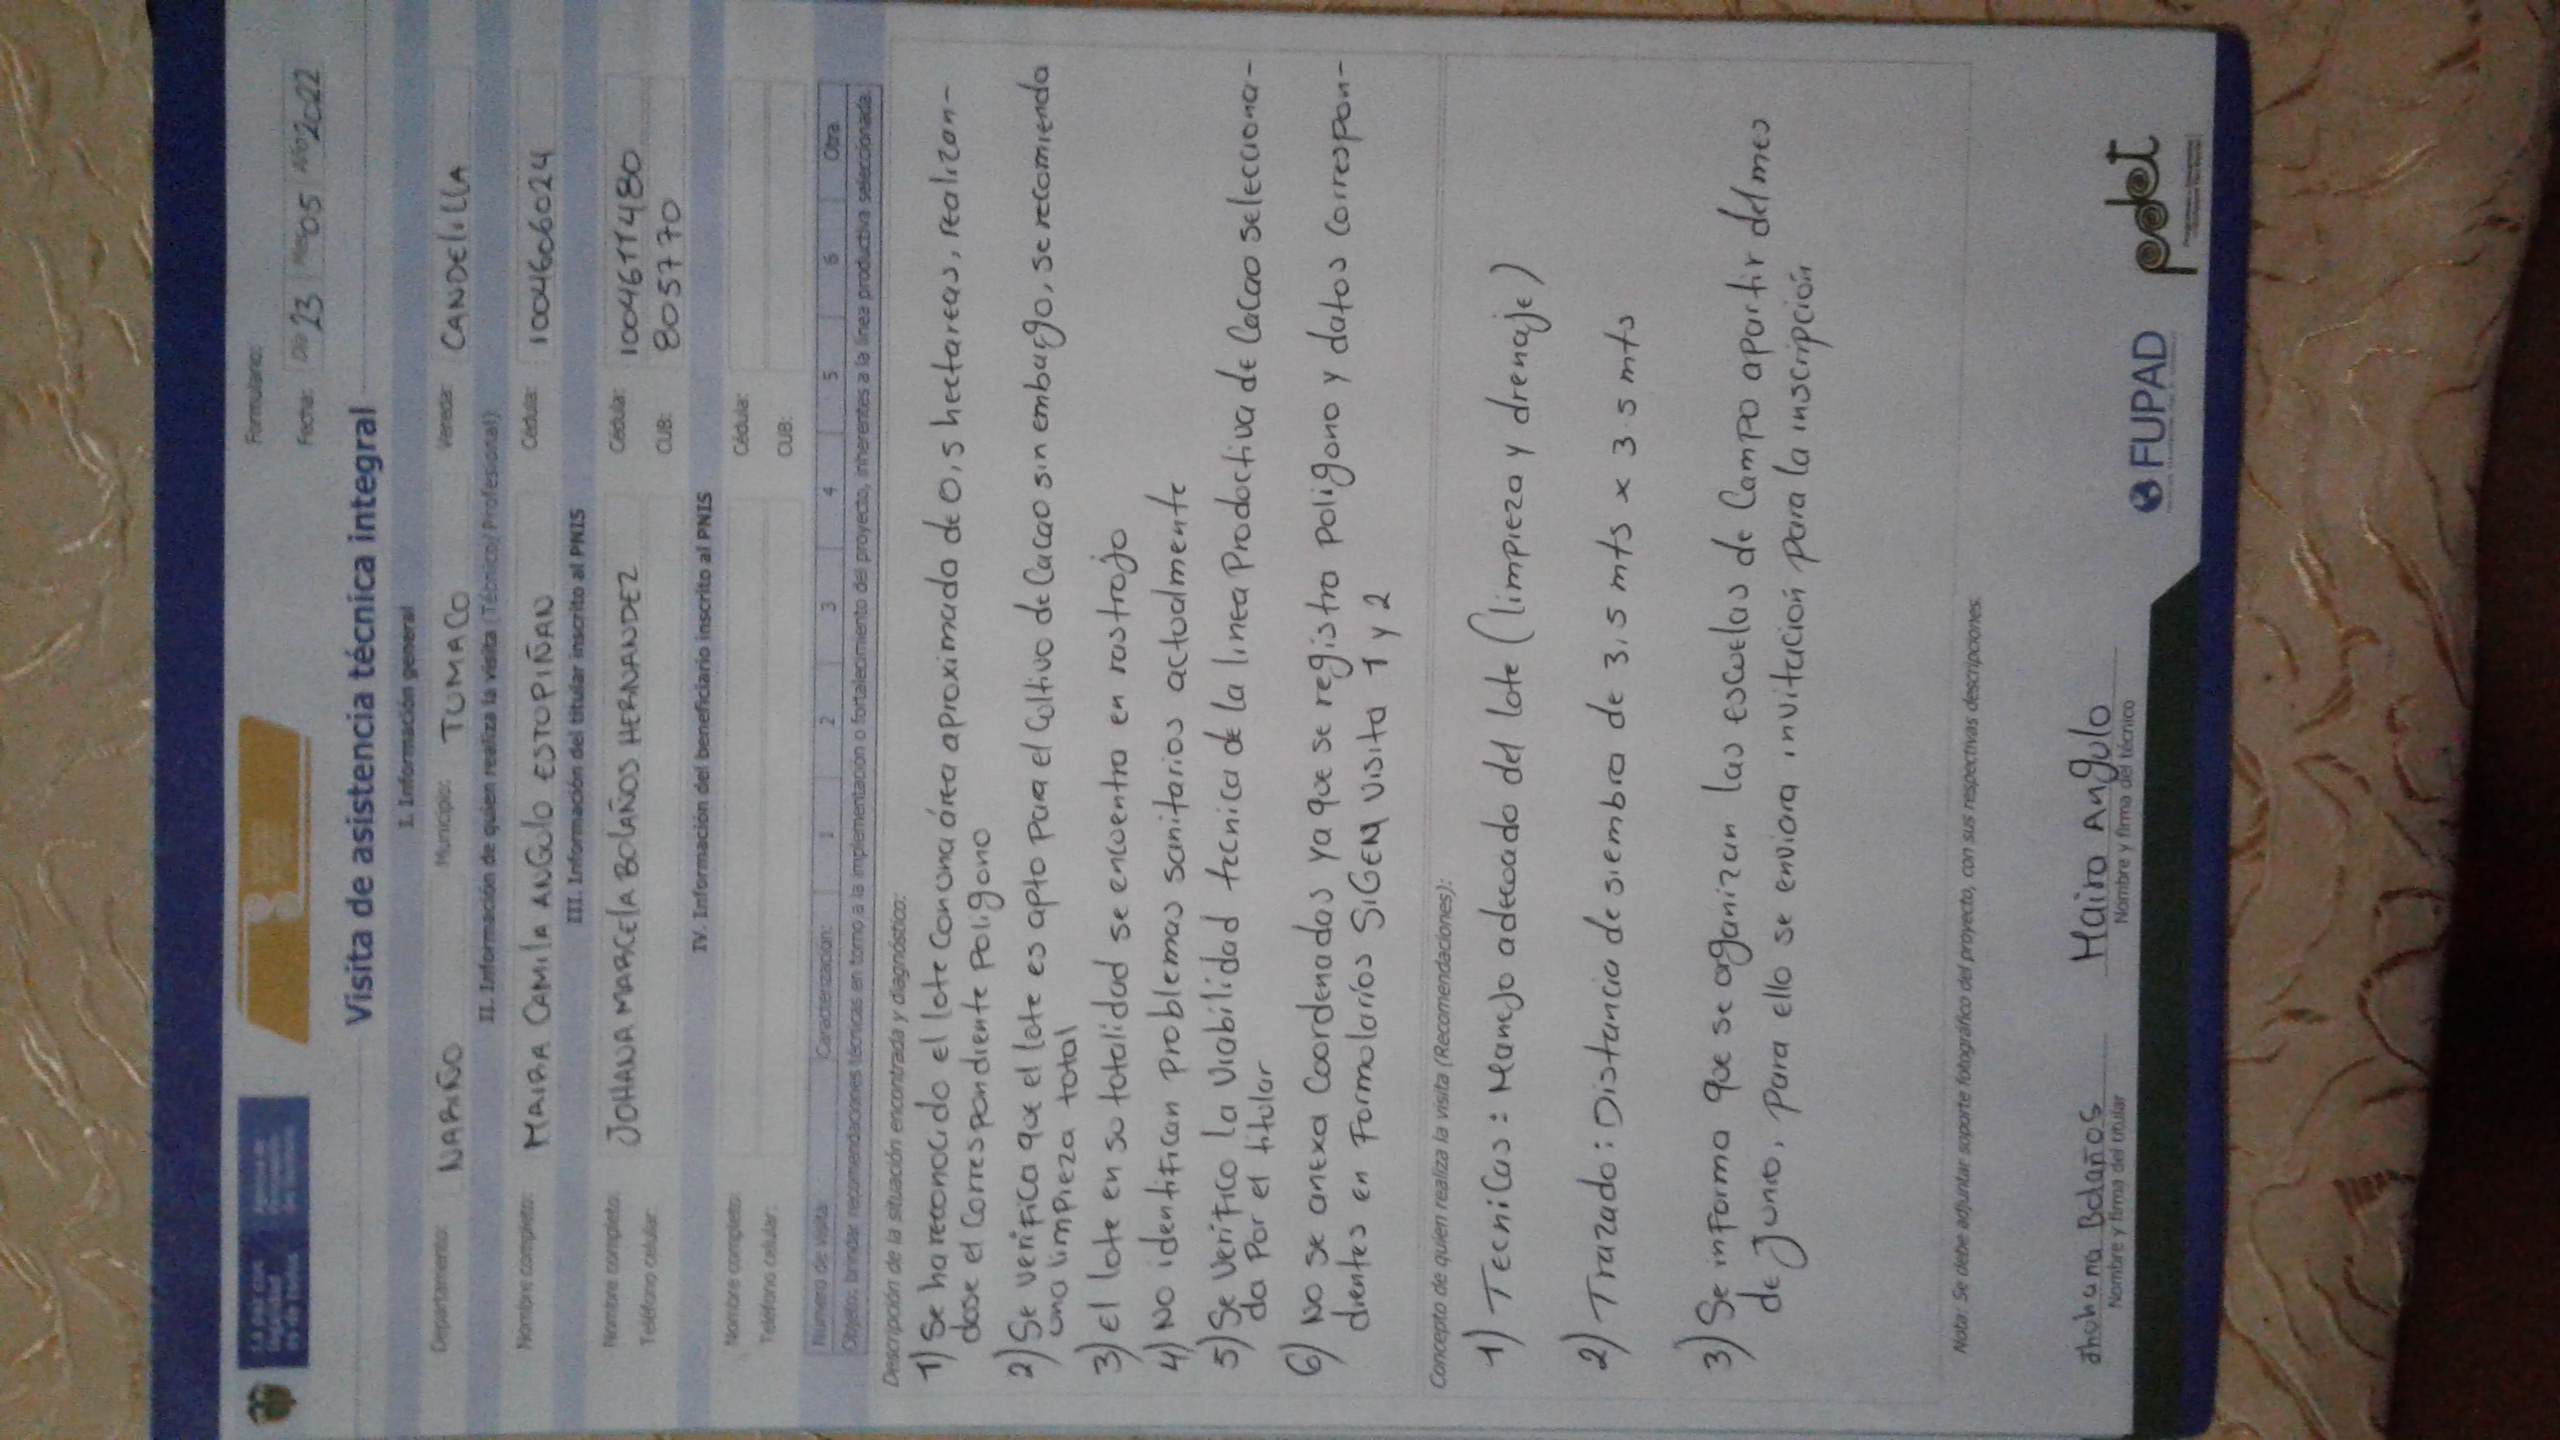 Formulario:
Fecha: Día 23 Mes 05 Año 2022
Visita de asistencia técnica integral
I. Información general
Departamento: NARIÑO Municipio: TUMACO Vereda: CANDELILLA
II. Información de quien realiza la visita (Técnico/Profesional)
Nombre completo: MAIRA CAMILA ANGULO ESTOPIÑAN Cédula: 1004606024
III. Información del titular inscrito al PNIS
Nombre completo: JOHANA MARCELA BOLAÑOS HERNANDEZ Cédula: 1004611480
Teléfono celular: CUB: 8057770
IV. Información del beneficiario inscrito al PNIS
Nombre completo: Cédula:
Teléfono celular: CUB:
Número de visita Caracterización: 1 2 3 4 5 6 Otra
Objeto: brindar recomendaciones técnicas en torno a la implementación o fortalecimiento del proyecto, inherentes a la línea productiva seleccionada.
Descripción de la situación encontrada y diagnóstico:
1) Se ha reconocido el lote con una área aproximada de 0,5 hectareas, realizan-
dose el correspondiente Poligono
2) Se verifica que el lote es apto para el cultivo de cacao sin embargo, se recomienda
una limpieza total
3) El lote en su totalidad se encuentra en rastrojo
4) No identifican problemas sanitarios actualmente
5) Se verifico la viabilidad tecnica de la linea Productiva de Cacao selecciona-
da por el titular
6) No se anexa coordenadas ya que se registra poligono y datos correspon-
dientes en Formolarios SiGEM visita 1 y 2
Concepto de quien realiza la visita (Recomendaciones):
1) Tecnicas: Manejo adecuado del lote (limpieza y drenaje)
2) Trazado: Distancia de siembra de 3,5 mts x 3.5 mts
3) Se informa que se organizan las escuelas de Campo apartir del mes
de Junio, Para ello se enviara invitación para la inscripción
Nota: Se debe adjuntar soporte fotográfico del proyecto, con sus respectivas descripciones.
Jhohana Bolaños Maira Angulo
Nombre y firma del titular Nombre y firma del técnico
FUPAD
pdet